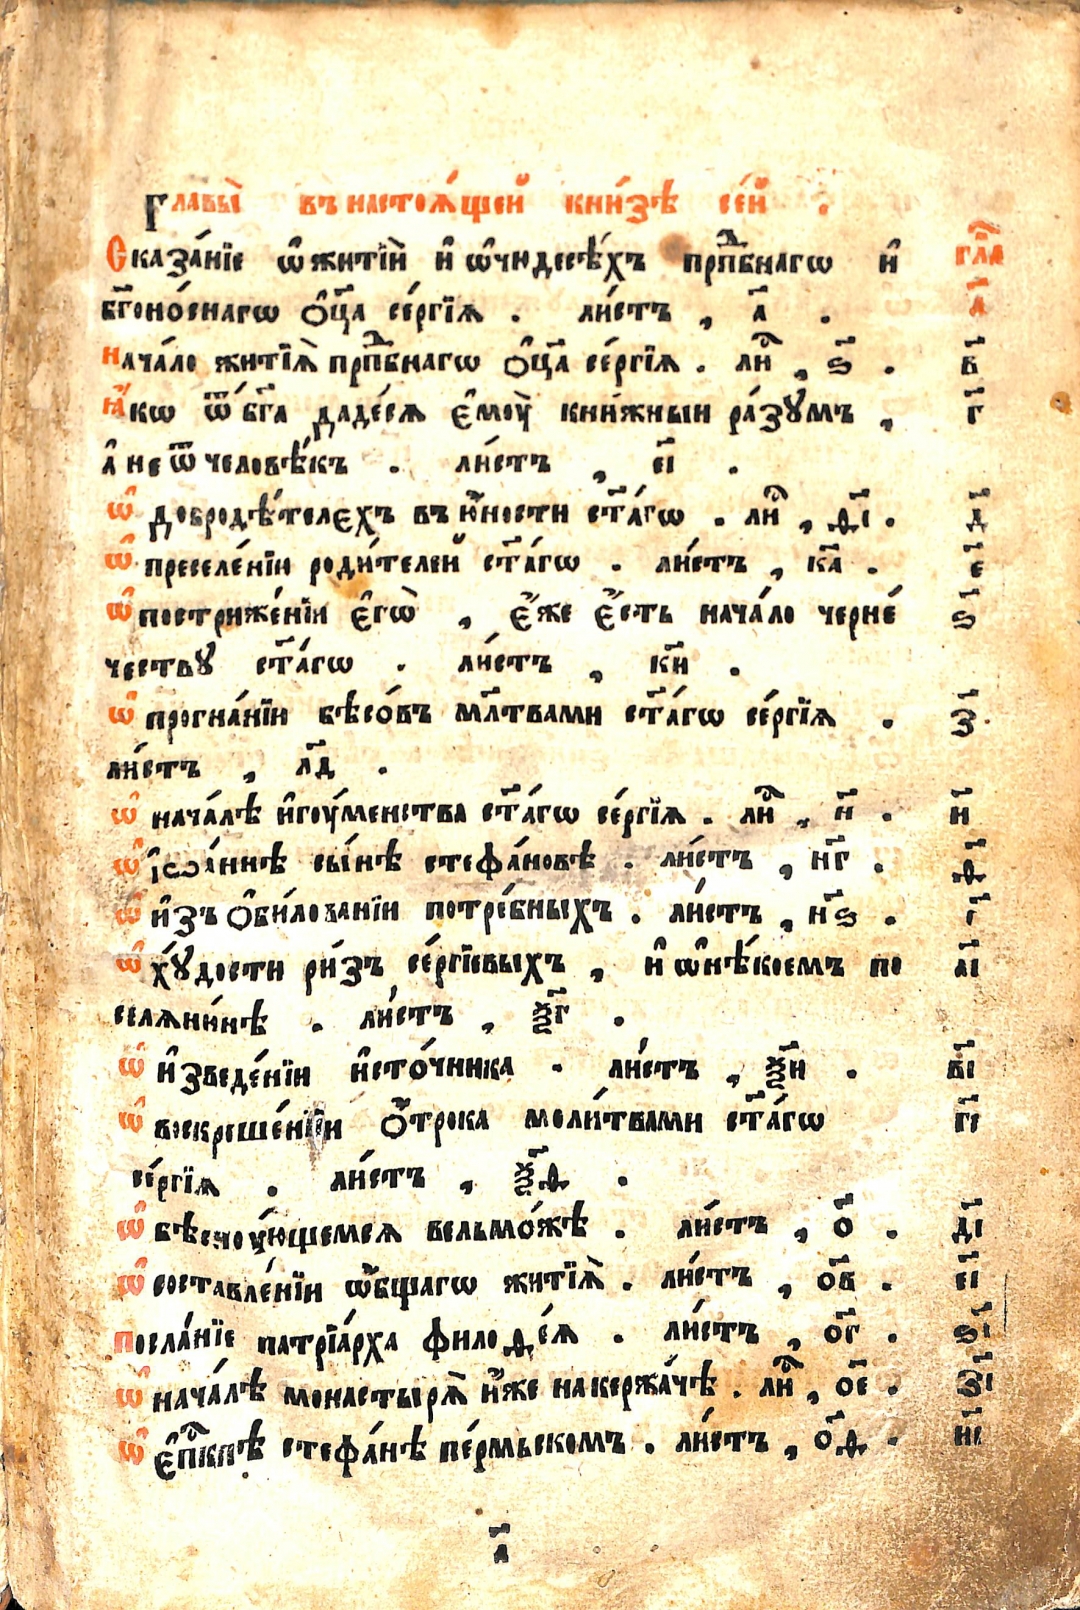 Главы̀ въ настоѧ́щей кни́зѣ се́й .
Сказа́нїе ѡ҆ житїѝ и҆ ѡ҆ чюдесѣ́хъ прп҇дбнагѡ и҆ гл҇а
бг҃оно́снагѡ ѻ҆ц҃а се́ргїѧ . ли́стъ , а҃ . а҃
Нача́ло житїѧ̀ прп҇дбнагѡ ѻ҆ц҃а се́ргїѧ . ли҇с , ѕ҃ . в҃
Ꙗ҆́кѡ ѿ бг҃а даде́сѧ є҆моу̀ кни́жныи ра́зꙋмъ , г҃
а҆ не ѿ человѣ́къ . ли́стъ , єı҃ .
Ѡ҆ добродѣ́телєхъ въ ю҆́ности ст҃а́гѡ . ли҇с , ѳı҃ . д҃
Ѡ҆ преселе́нїи роди́телей ст҃а́гѡ . ли́стъ , ка҃ . є҃
Ѡ҆ пострижє́нїи є҆гѡ̀ , є҆́же є҆́сть нача́ло черне́ ѕ҃
чествꙋ ст҃а́гѡ . ли́стъ , ки҃ .
Ѡ҆ прогна́нїи бѣсо́въ мл҃твами ст҃а́гѡ се́ргїѧ . з҃
ли́стъ , лд҃ .
Ѡ҆ нача́лѣ и҆гоу́менства ст҃а́гѡ се́ргїѧ . ли҇с , н҃ . и҃
Ѡ҆ і҆ѡа́ннѣ сы́нѣ стефа́новѣ . ли́стъ , нг҃ . ѳ҃
Ѡ҆ и҆зъѻби́лованїи потре́бныхъ . ли́стъ , нѕ҃ . ı҃
Ѡ҆ хꙋ́дости ри́зъ се́ргїевыхъ , и҆ ѡ҆ нѣ́коемъ по аı҃
селѧни́нѣ . ли́стъ , ѯг҃ .
Ѡ҆ и҆зведе́нїи и҆сто́чника . ли́стъ , ѯи҃ . вı҃
Ѡ҆ воскреше́нїи ѻ҆́трока моли́твами ст҃а́гѡ гı҃
се́ргїѧ . ли́стъ , ѯѳ҃ .
Ѡ҆ бѣсноу́ющемсѧ вельмо́жѣ . ли́стъ , ѻ҃ . дı҃
Ѡ҆ составле́нїи ѡ҆́бщагѡ житїѧ̀ . ли́стъ , ѻв҃ . єı҃
Посла́нїе патрїа́рха филоѳе́ѧ . ли́стъ , ѻг҃ . ѕı҃
Ѡ҆ нача́лѣ монастырѧ̀ и҆́же на кержа́чѣ . ли҇с , ѻє҃ . зı҃
Ѡ҆ є҆п҇кпѣ стефа́нѣ пе́рмьскомъ . ли́стъ , ѻѳ҃ . иı҃
а҃